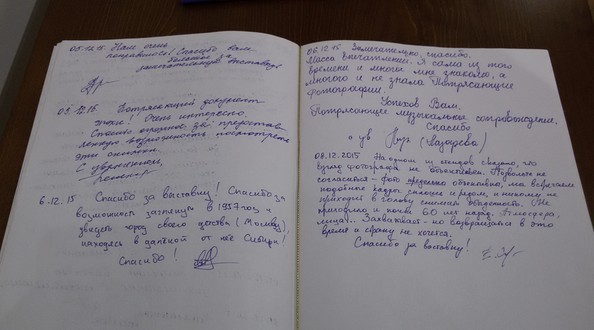 05.12.15 Нам очень
понравилось! Спасибо Вам
большое за
замечательную выставку
02.12.15 Потрясающий документ
эпохи! Очень интересно.
Спасибо огромное за предостав-
ленную возможность посмотреть
эти снимки.
С уважением,
6.12.15 Спасибо за выставку! Спасибо за
возможность заглянуть в 1957 год и
увидеть город своего детства (Москву),
находясь в далёкой от неё Сибири!
Спасибо!
08.12.15 Замечательно, спасибо.
Масса впечатлений. Я сама из того
времени и многое мне знакомо, а
многого и не знала. Потрясающие
фотографии.
Успехов Вам.
Потрясающее музыкальное сопровождение.
Спасибо
с ув.
08.12.2015 На одном из стендов сказано, что
взгляд фотографа не объективен. Позвольте не
согласиться - фото предельно объективно, мы встречаем
подобные кадры сплошь и рядом, и никому не
приходит в голову снимать обыденность. Не
приходило и почти 60 лет назад. Атмосфера,
лица!.. Захватывает - но возвращаться в это
время и страну не хочется.
Спасибо за выставку!